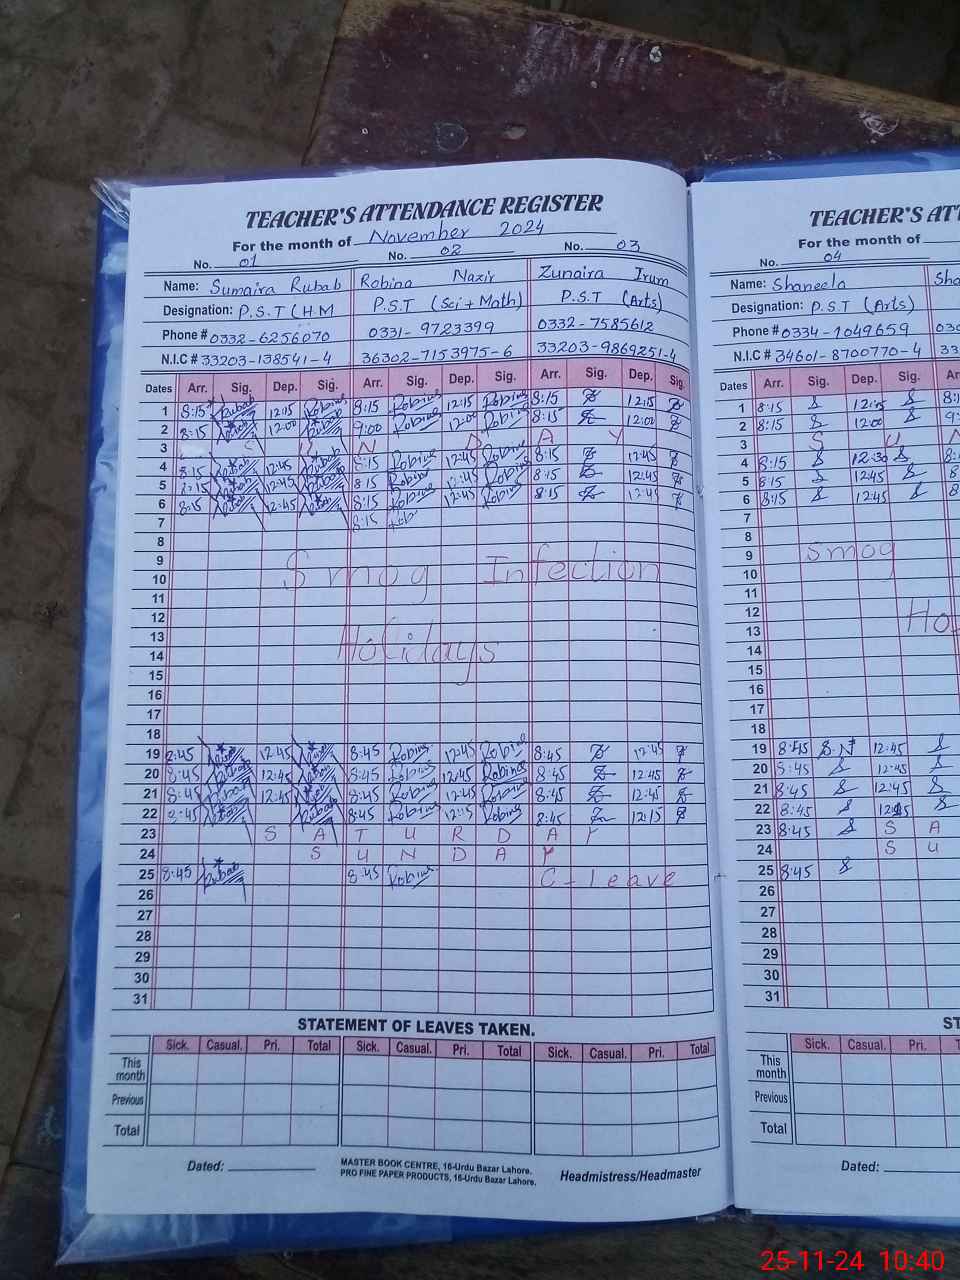 TEACHER'S ATTENDANCE REGISTER
For the month of November 2024
No. 01 No. 02 No. 03
Name: Sumaira Rubab Robina Nazir Zunaira Irum
Designation: P.S.T (H.M P.S.T (Sci + Math) P.S.T (Arts)
Phone # 0332-6256070 0331-9723399 0332-7585612
N.I.C # 33203-138541-4 36302-7153975-6 33203-9869251-4
Dates Arr. Sig. Dep. Sig. Arr. Sig. Dep. Sig. Arr. Sig. Dep. Sig.
1 8:15 Rubab 12:15 8:15 Robina 12:15 Robina 8:15 12:15
2 8:15 12:00 9:00 Robina 12:00 Robina 8:15 12:00
3 S U N D A Y
4 8:15 12:45 8:15 Robina 12:45 Robina 8:15 12:45
5 12:45 8:15 Robina 12:45 Robina 8:15 12:45
6 8:15 12:45 8:15 Robina 12:45 Robina 8:15 12:45
7 8:15
8
9 Smog Infection
10
11
12
13 Holidays
14
15
16
17
18
19 8:45 12:45 8:45 Robina 12:45 Robina 8:45 12:45
20 8:45 12:45 8:45 Robina 12:45 Robina 8:45 12:45
21 8:45 12:45 8:45 Robina 12:45 Robina 8:45 12:45
22 8:45 8:45 Robina 12:15 Robina 8:45 12:15
23 S A T U R D A Y
24 S U N D A Y
25 8:45 Rubab 8:45 Robina C-leave
26
27
28
29
30
31
STATEMENT OF LEAVES TAKEN.
Sick. Casual. Pri. Total Sick. Casual. Pri. Total Sick. Casual. Pri. Total
This month
Previous
Total
Dated:
MASTER BOOK CENTRE, 16-Urdu Bazar Lahore.
PRO FINE PAPER PRODUCTS, 16-Urdu Bazar Lahore.
Headmistress/Headmaster
TEACHER'S ATT
For the month of
No. 04
Name: Shaneela Sha
Designation: P.S.T (Arts)
Phone # 0334-1049659
N.I.C # 34601-8700770-4 33
Dates Arr. Sig. Dep. Sig.
1 8:15 12:15
2 8:15 12:00
3 S U N
4 8:15 12:30
5 8:15 12:45
6 8:15 12:45
7
8
9 Smog
10
11
12
13 Ho
14
15
16
17
18
19 8:45 S.N 12:45
20 8:45 12:45
21 8:45 12:45
22 8:45 12:45
23 8:45 S A
24 S U
25 8:45
26
27
28
29
30
31
ST
Sick. Casual. Pri.
This month
Previous
Total
Dated:
25-11-24 10:40